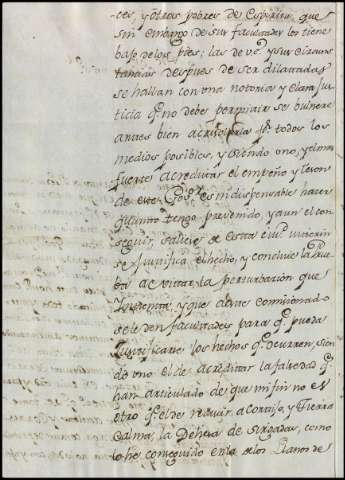 ces, y otros pobres de Espiritu que
sin embargo de sus facultades los tiene
bajo de los pies; las de V.ᵈ y sus circuns
tancias despues de ser dilatadas
se hallan con una notoria y clara Jus
ticia q.ᵉ no debe permitir se bulnere
antes bien acrisolarla p.ʳ todos los
medios posibles, y siendo uno, y el mas
fuerte acreditar el empeño y teson
de este Gov.ᵒʳ es indispensable hacer
quanto tengo prevenido, y aun el con
seguir, saliese de esta ciu.ᵈ interin
se Justifica el hecho, y concluie la prue
ba a evitar la perturbacion que
Intenta, y que a este comisionado
se le den facultades para q.ᵉ pueda
Justificar los hechos q.ᵉ ocurren, sien
do uno el de acreditar la falsedad q.ᵉ
han articulado de que mi fin no es
otro q.ᵉ el de reducir a Cortijo, y Tierra
calma, la Dehesa de, como
lo he conseguido en la de los Llanos de